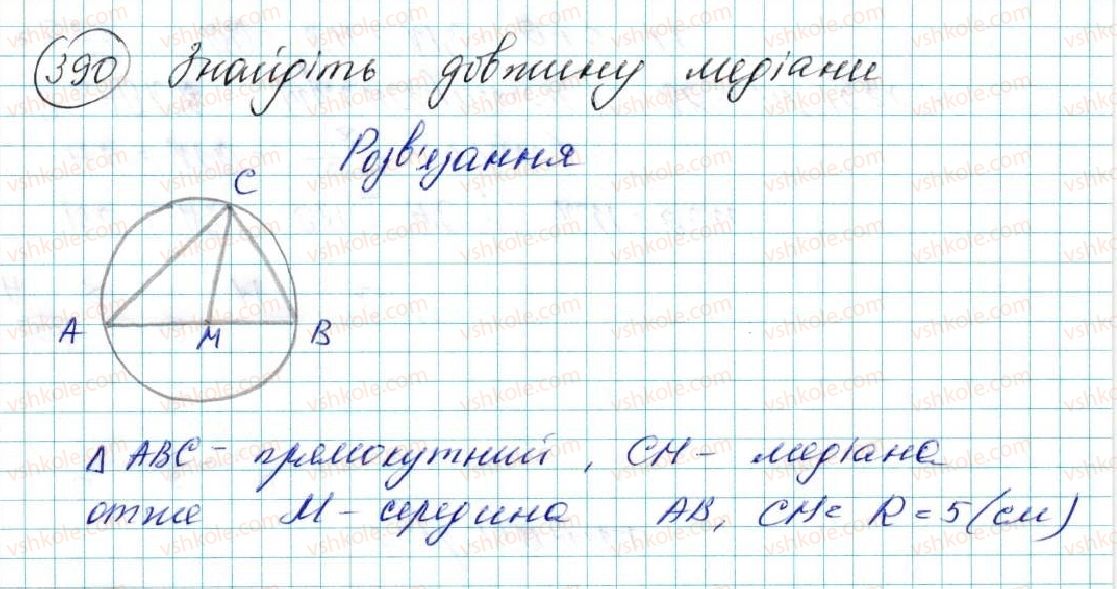 390 Знайдіть довжину медіани
Розв'язання
C
A
M
B
Δ ABC - прямокутний, CH - медіана
отже M - середина AB, CH = R = 5 (см)